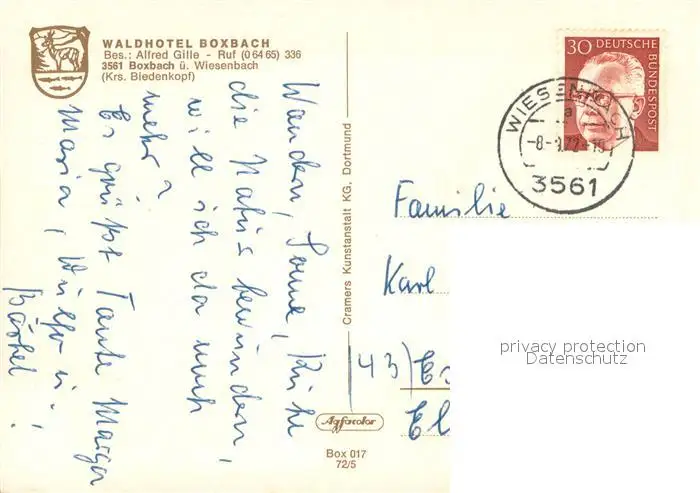 WALDHOTEL BOXBACH
Bes.: Alfred Gille - Ruf (0 64 65) 336
3561 Boxbach ü. Wiesenbach
(Krs. Biedenkopf)
30 DEUTSCHE
BUNDESPOST
WIESENBACH
a
-8-9.72-
3561
Wandern, Sonne, Ruhe
die Natur bewundern,
will ich da noch
mehr?
Es grüßt Tante Marga
Maria,
Bärbel
Cramers Kunstanstalt KG, Dortmund
Familie
Karl
(43) Es
El
privacy protection
Datenschutz
Agfacolor
Box 017
72/5